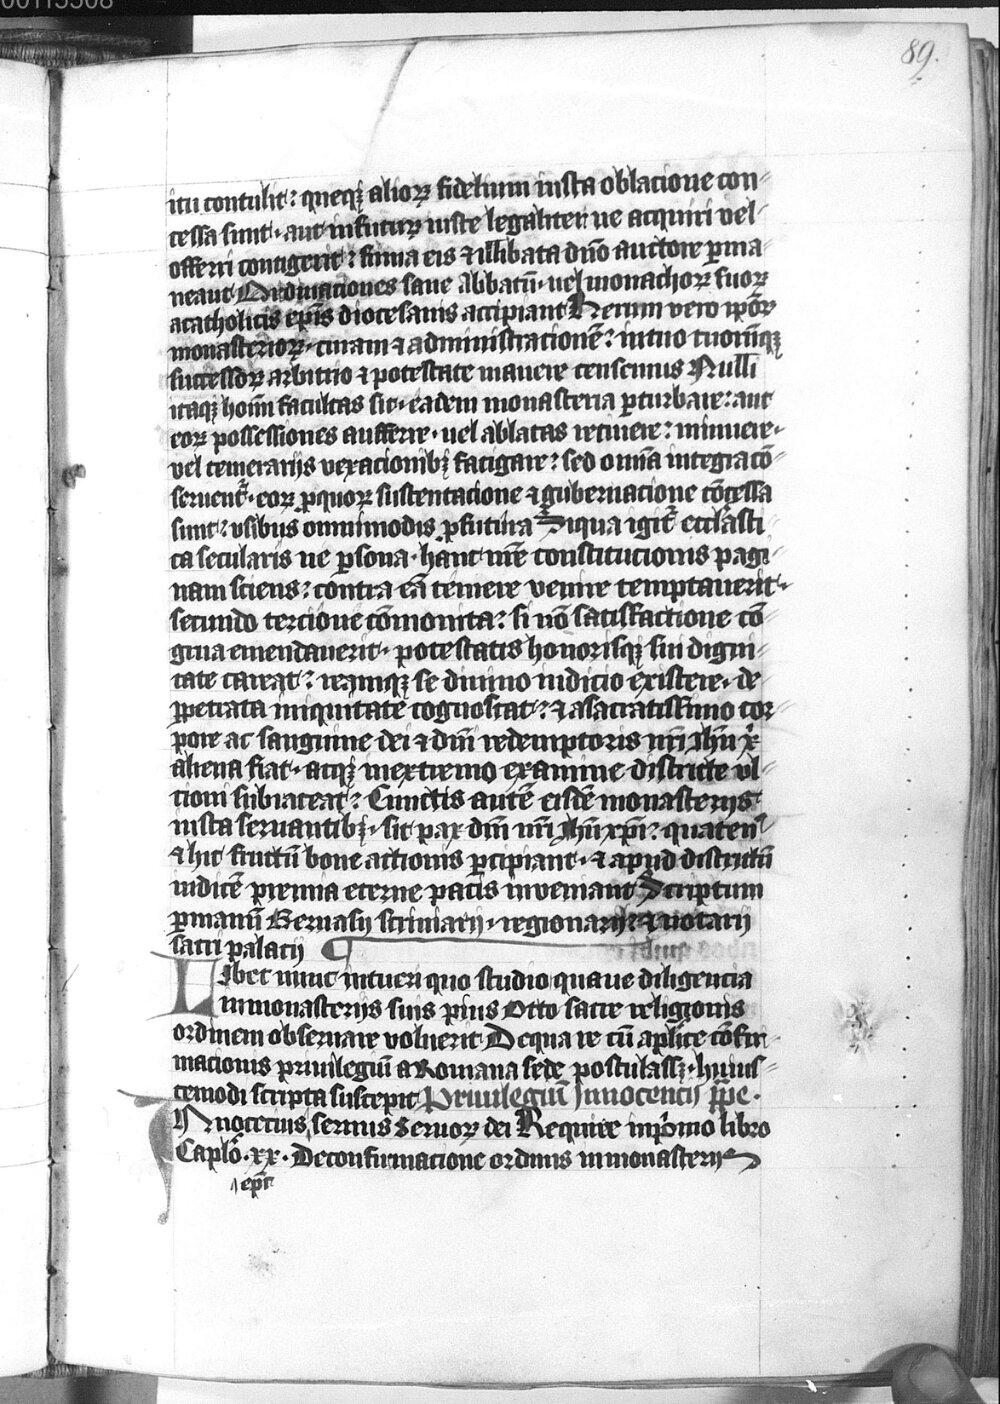 00115508
89.
itu contulit: queqꝫ alioꝝ fidelium iusta oblacione con-
cessa sunt· aut infuturꝫ iuste legaliter ue acquiri vel-
offerri contigerit: firma eis ⁊ illibata dño auctore ꝑma-
neant Ordinaciones sane abbatū· uel monachoꝝ suoꝝ
acatholicis ep̄is diocesanis accipiant Rerum vero ip̄oꝝ
monasterioꝝ· curam ⁊ administracionē: in tuo tuorūqꝫ
successoꝝ arbitrio ⁊ potestate manere censemus Nulli
itaqꝫ hoīm facultas sit· eadem monasteria ꝑturbare: aut
eoꝝ possessiones aufferre· uel ablatas retinere: minuere·
vel temerarijs vexacionibꝫ fatigare: sed omīa integra cō-
seruent᷑· eoꝝ ꝑquoꝝ sustentacione ⁊ gubernacione cōcessa
sunt: vsibus omnimodis ꝓfutura Siqua igit᷑ eccl̄iasti-
ca secularis ue ꝑsona· hanc nr̄e constitucionis pagi-
nam sciens: contra eā temere venire temptauerit·
secundo tercioue cōmonita: si nō satisfactione cō-
grua emendauerit· potestatis honorisqꝫ sui digni-
tate careat: reamqꝫ se diuino iudicio existere· de
ꝑpetrata iniquitate cognoscat: ⁊ asacratissimo cor-
pore ac sanguine dei ⁊ dn̄i redemptoris nr̄i Jhū x̄
aliena fiat· atqꝫ inextremo examine districte vl-
tioni subiaceat: Cunctis autē eisdē monasterijs
iusta seruantibꝫ· sit pax dn̄i nr̄i Jhū xp̄i: quaten᷒
⁊ hic fructū bone actionis ꝑcipiant· ⁊ apud districtū
iudicē premia eterne pacis inueniant Scriptum
ꝑmanū Geruasij scriniarij· regionarij: ⁊ notarij
sacri palacij
Libet nunc intueri quo studio quaue diligencia
inmonasterijs suis pius Otto sacre religionis
ordinem obseruare voluerit Dequa re cū aplice cōfir-
macionis priuilegiū a Romana sede postulassꝫ· huius-
cemodi scripta suscepit Priuilegiū Jnnocencij pp̄e·
Jnnocecius seruus Seruoꝝ dei Require inp̄mo libro
Caplō· xx· Deconfirmacione ordinis inmonasterijs
ep̄c